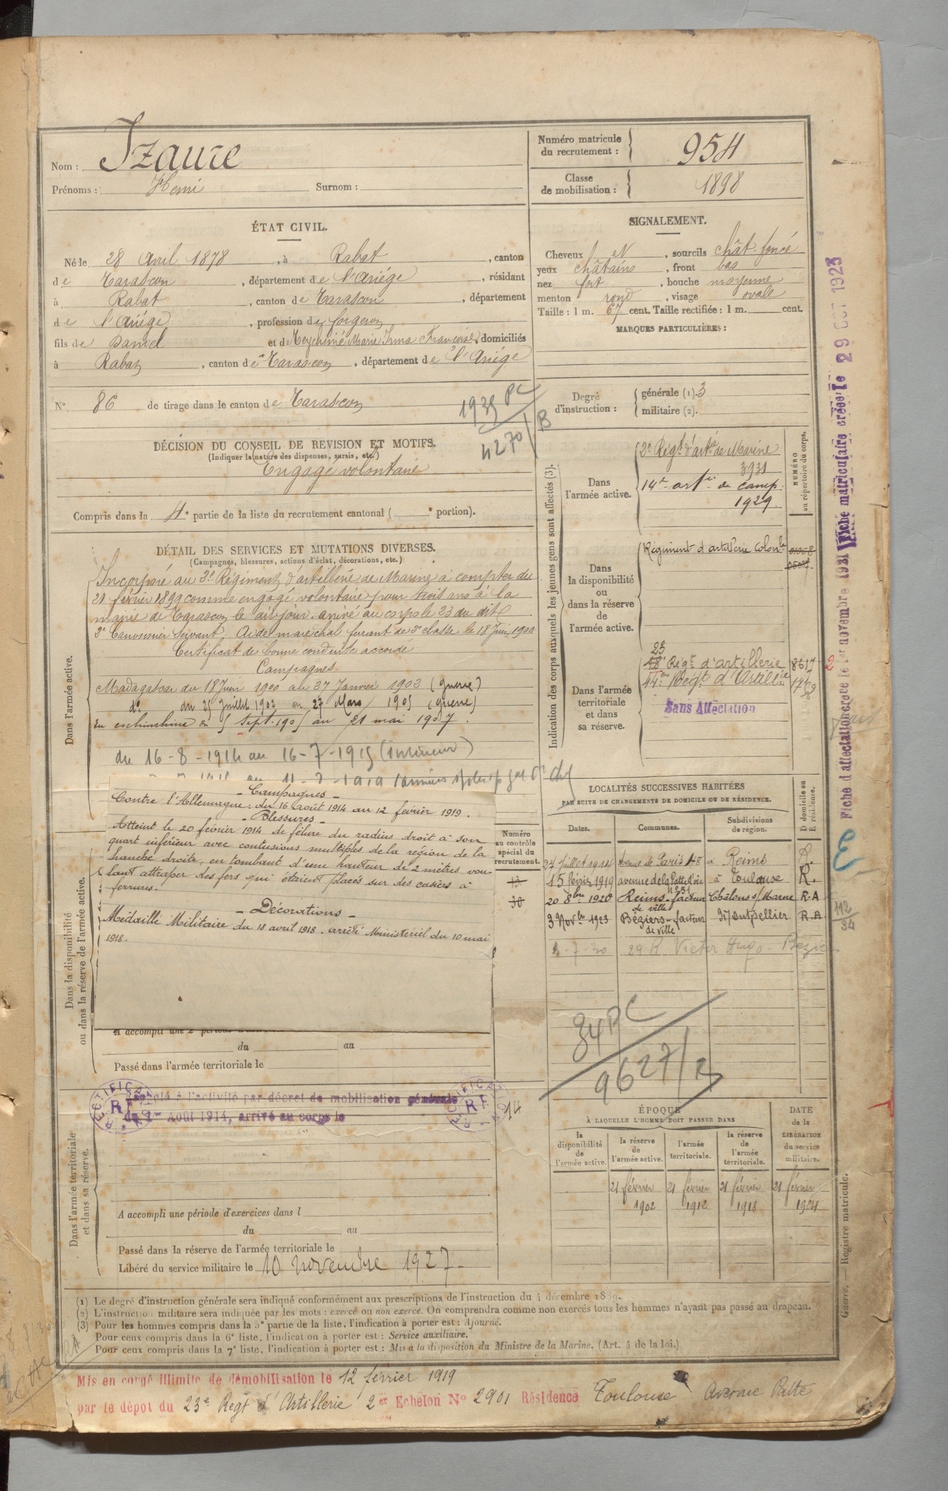 Nom : Izaure
Prénoms : Henri Surnom :
Numéro matricule du recrutement : 954
Classe de mobilisation : 1898
ÉTAT CIVIL.
Né le 28 Avril 1878, à Rabat, canton
de Tarascon, département de l'Ariège, résidant
à Rabat, canton de Tarascon, département
de l'Ariège, profession de forgeron
fils de et de Marie Irma Françoise, domiciliés
à Rabat, canton de Tarascon, département de l'Ariège
N° 86 de tirage dans le canton de Tarascon
SIGNALEMENT.
Cheveux N, sourcils chât foncé
yeux châtains, front bas
nez fort, bouche moyenne
menton rond, visage ovale
Taille : 1 m. 67 cent. Taille rectifiée : 1 m. cent.
MARQUES PARTICULIÈRES :
Degré d'instruction : générale (1) 3
militaire (2).
1935 PC
4270/B
DÉCISION DU CONSEIL DE REVISION ET MOTIFS.
(Indiquer la nature des dispenses, sursis, etc.)
Engagé volontaire
Compris dans la 4e partie de la liste du recrutement cantonal ( e portion).
DÉTAIL DES SERVICES ET MUTATIONS DIVERSES.
(Campagnes, blessures, actions d'éclat, décorations, etc.)
Dans l'armée active.
Incorporé au 3e Régiment d'artillerie de Marine à compter du
21 février 1899 comme engagé volontaire pour trois ans à la
mairie de Tarascon le dit jour arrivé au corps le 23 du dit
2e Canonnier Servant, Aide maréchal ferrant de 3e classe le 18 Juin 1900
Certificat de bonne conduite accordé
Campagnes
Madagascar du 18 Juin 1900 au 27 Janvier 1903 (guerre)
do du 25 juillet 1903 au 27 Mars 1905 (guerre)
En indochine du 5 Sept. 1905 au 21 mai 1907.
du 16-8-1914 au 16-7-1915 (intérieur)
- Campagnes -
Contre l'Allemagne : du 16 août 1914 au 12 février 1919.
- Blessures -
Atteint le 20 février 1914 de fêlure du radius droit à son
quart inférieur avec contusions multiples de la région de la
hanche droite, en tombant d'une hauteur de 2 mètres, vou-
lant attraper des fers qui étaient placés sur des casiers à
ferrures.
- Décorations -
Médaille Militaire du 18 avril 1918. arrêté Ministériel du 10 mai
1918.
Dans la disponibilité ou dans la réserve de l'armée active.
A accompli une 2e période
du au
Passé dans l'armée territoriale le
Rappelé à l'activité par décret de mobilisation générale
du 1er Août 1914, arrivé au corps le
RECTIFICATION
RF
RECTIFICATION
RF
14
Dans l'armée territoriale et dans sa réserve.
A accompli une période d'exercices dans l
du au
Passé dans la réserve de l'armée territoriale le
Libéré du service militaire le 10 novembre 1927
Indication des corps auxquels les jeunes gens sont affectés (3).
NUMÉRO au répertoire du corps.
Dans l'armée active.
3e Régt d'artie de Marine
3931
14e artie de camp.
1929
Dans la disponibilité ou dans la réserve de l'armée active.
Régiment d'artillerie Colonle
Dans l'armée territoriale et dans sa réserve.
23
Régt d'artillerie 8617
Régt d'Artillerie
Sans Affectation
Numéro au contrôle spécial du recrutement.
LOCALITÉS SUCCESSIVES HABITÉES
PAR SUITE DE CHANGEMENTS DE DOMICILE OU DE RÉSIDENCE.
Dates. Communes. Subdivisions de région. D domicile ou R résidence.
Juillet 1914 de Paris 48 à Reims
15 février 1919 avenue à Toulouse R.
20 8bre 1920 Reims facteur de ville Châlons s/Marne R.A
3 Novbre 1923 Béziers facteur de ville Montpellier R.A
29 R. Victor Hugo Béziers
34 PC
9627/2
ÉPOQUE
À LAQUELLE L'HOMME DOIT PASSER DANS
DATE de la LIBÉRATION du service militaire.
la disponibilité de l'armée active. la réserve de l'armée active. l'armée territoriale. la réserve de l'armée territoriale.
21 février 1902 21 février 1912 21 février 1918 21 février 1924
(1) Le degré d'instruction générale sera indiqué conformément aux prescriptions de l'instruction du 4 décembre 1889.
(2) L'instruction militaire sera indiquée par les mots : exercé ou non exercé. On comprendra comme non exercés tous les hommes n'ayant pas passé au drapeau.
(3) Pour les hommes compris dans la 5e partie de la liste, l'indication à porter est : Ajourné.
Pour ceux compris dans la 6e liste, l'indication à porter est : Service auxiliaire.
Pour ceux compris dans la 7e liste, l'indication à porter est : Mis à la disposition du Ministre de la Marine. (Art. 4 de la loi.)
Mis en congé illimité de démobilisation le 12 février 1919
par le dépôt du 23e Régt d'Artillerie 2er Echelon N° 2901 Résidence Toulouse Avenue
Fiche d'affectation créée le 1er novembre 1921 Fiche matriculaire créée le 29 OCT 1923
112
34
Guerre. — Registre matricule.